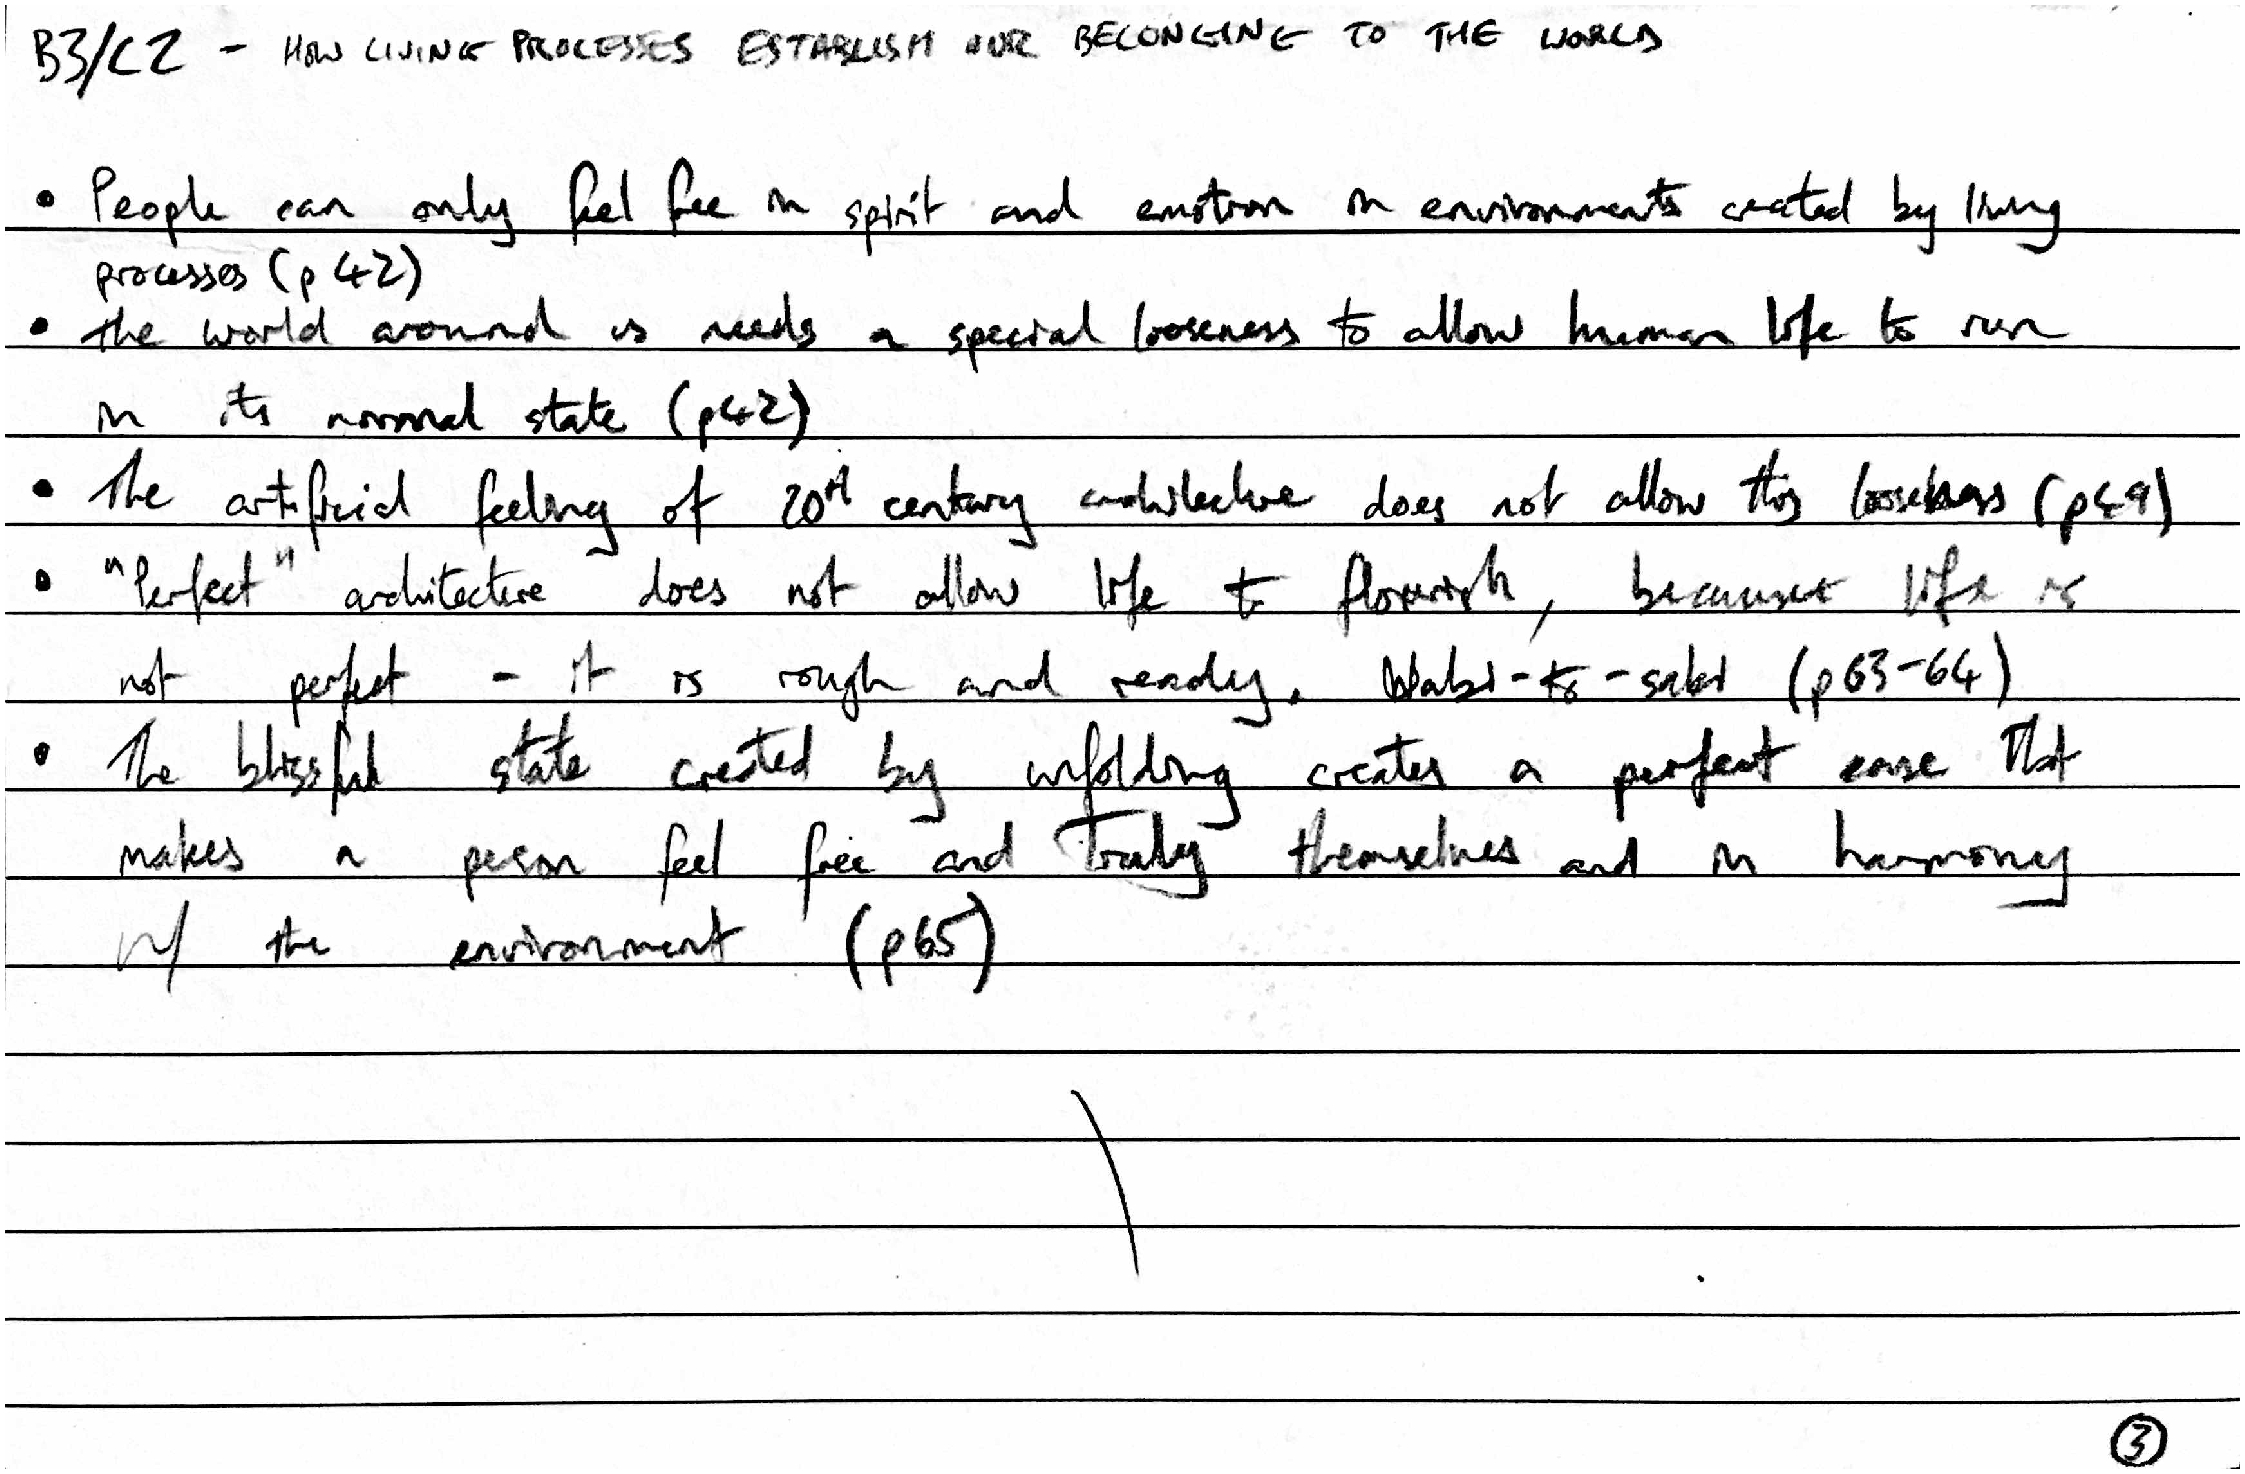 B3/C2 - HOW LIVING PROCESSES ESTABLISH OUR BELONGING TO THE WORLD
• People can only feel free in spirit and emotion in environments created by living
processes (p42)
• The world around us needs a special looseness to allow human life to run
in its normal state (p42)
• The artificial feeling of 20th century architecture does not allow this looseness (p49)
• "Perfect" architecture does not allow life to flourish, because life is
not perfect - it is rough and ready. Wabi-to-sabi (p63-64)
• The blissful state created by unfolding creates a perfect ease that
makes a person feel free and truly themselves and in harmony
w/ the environment (p65)
3